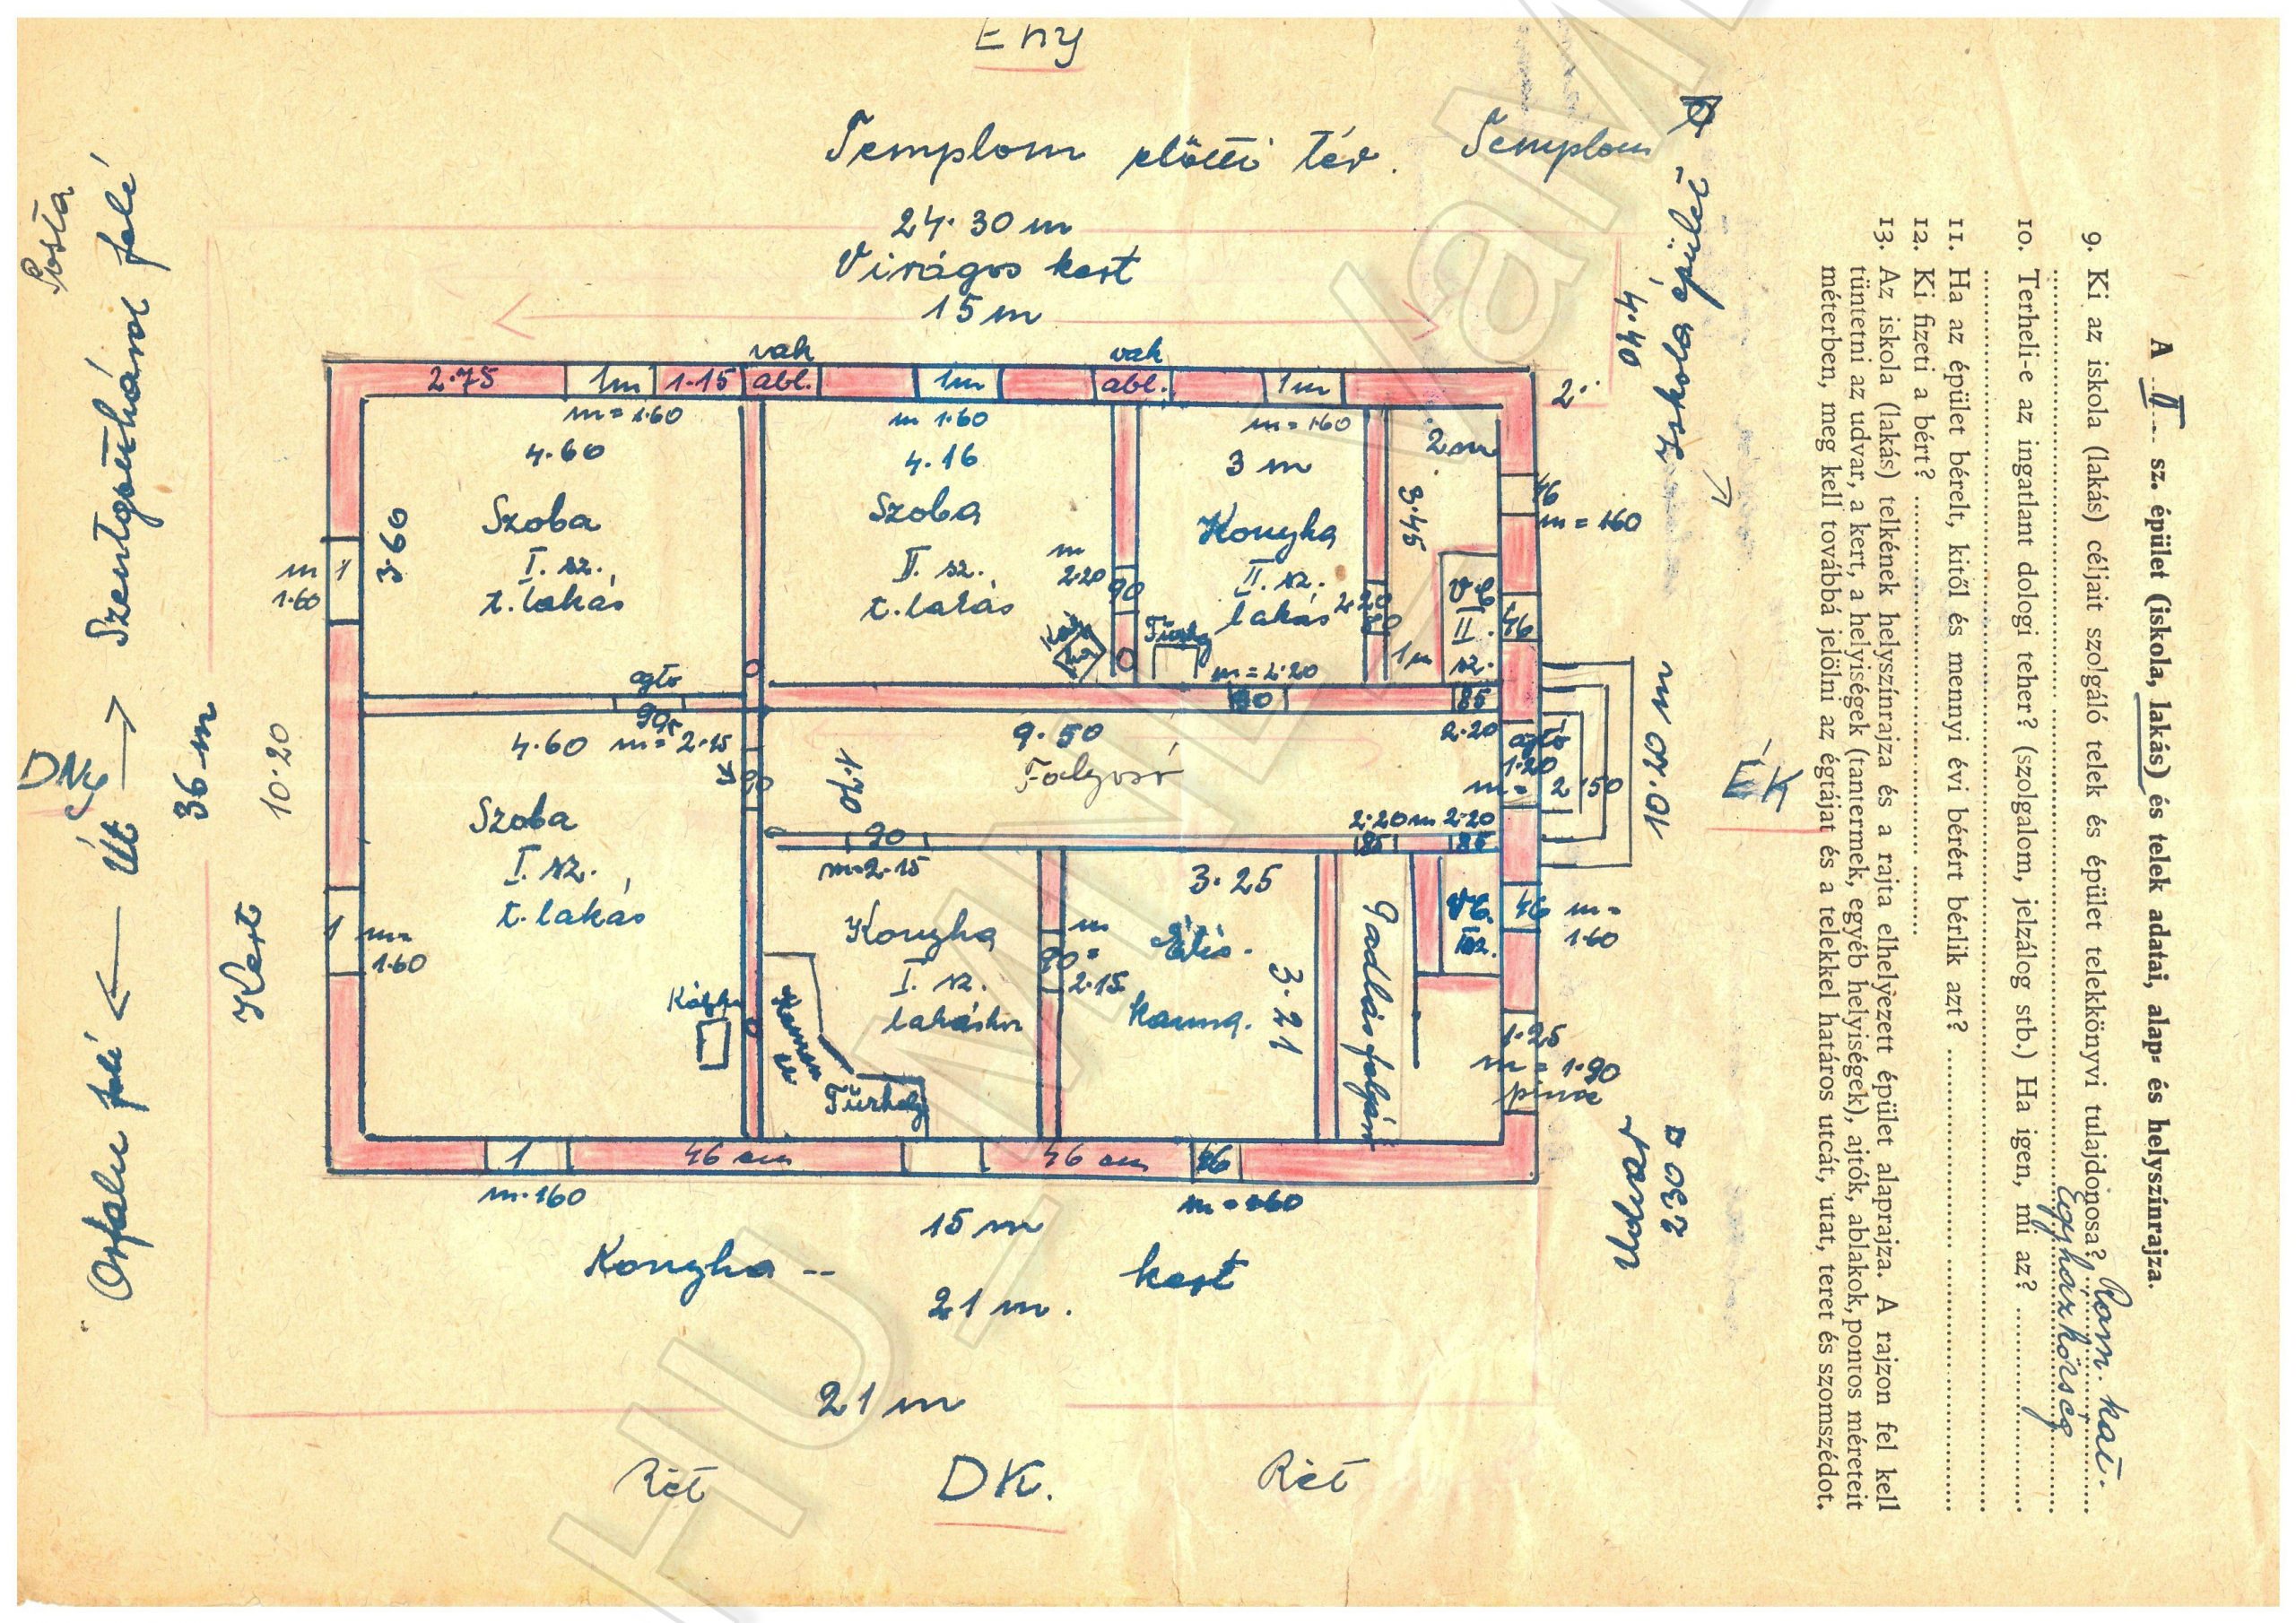 A II sz. épület (iskola, lakás) és telek adatai, alap- és helyszínrajza.
9. Ki az iskola (lakás) céljait szolgáló telek és épület telekkönyvi tulajdonosa? Rom. kat.
Egyházközség
10. Terheli-e az ingatlant dologi teher? (szolgalom, jelzálog stb.) Ha igen, mi az?
11. Ha az épület bérelt, kitől és mennyi évi bérért bérlik azt?
12. Ki fizeti a bért?
13. Az iskola (lakás) telkének helyszínrajza és a rajta elhelyezett épület alaprajza. A rajzon fel kell
tüntetni az udvar, a kert, a helyiségek (tantermek, egyéb helyiségek), ajtók, ablakok, pontos méreteit
méterben, meg kell továbbá jelölni az égtájat és a telekkel határos utcát, utat, teret és szomszédot.
ÉNy
Templom előtti tér. Templom
24.30 m
Virágos kert
15 m
4.40
Iskola épület
vak
vak
2.75 1m 1.15 abl. 1m abl. 1m
2.
m=1.60
m 1.60
m=160
4.60
4.16
3 m
2m
3.60
Szoba
I. sz.
t. lakás
Szoba
II. sz.
t. lakás
m
2.20
90
Konyha
II. sz.
lakás
2.20
80
3.45
46
m=160
m 1
1.60
Tűzh
m=2.20
90
1m
VC
II.
sz.
46
85
2.20
ajtó
90
4.60 m=2.15
90
9.50
Folyosó
1.70
ajtó
1.20
m= 2.150
10.20 m
ÉK
Szoba
I. sz.
t. lakás
90
m=2.15
2.20 m 2.20
85
85
1 m=
1.60
Konyha
I. sz.
lakáshoz
m
90=
2.15
3.25
Élés-
kamra.
3.21
Padlásfeljáró
VC.
I sz.
46 m=
1.60
Kályha
Kamra
Tűzhely
1.25
m=1.90
pince
1 46 cm 46 cm 46
m.160
m=160
15 m
Konyha -- kert
21 m.
230 □
udvar
21 m
Rét DK. Rét
Posta
Orfalu felé ← Út → Szentgotthárd felé
DNy
36 m
10.20
Kert
HU_MNL_VaML